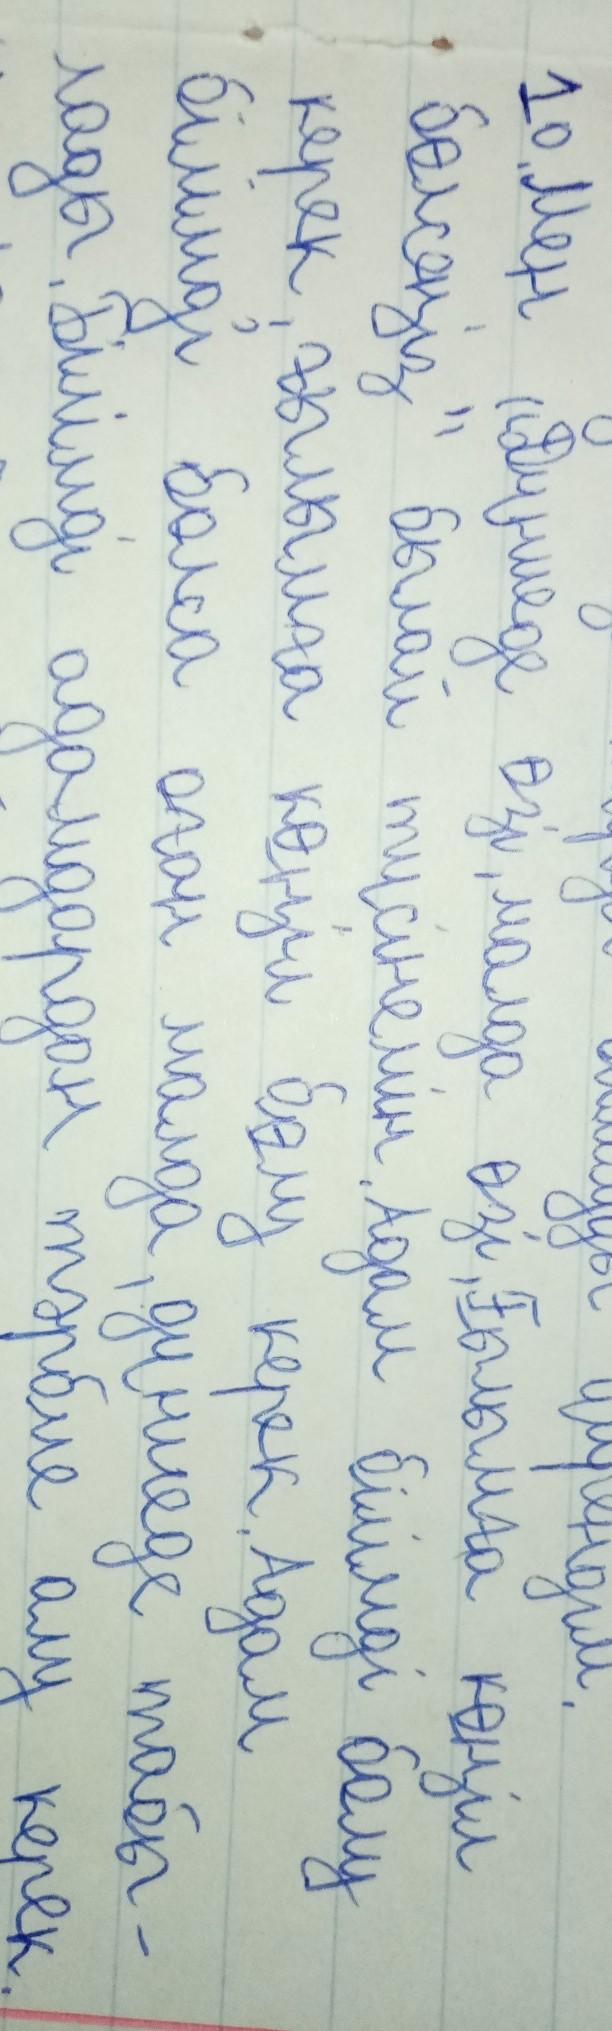 үйрендім.
10. Мен "Дүниеде өзі, малда өзі, Ғылымға көңіл
бөлсеңіз" былай түсінемін. Адам білімді болу
керек, ғылымға көңіл бөлу керек. Адам
білімді болса оған малда, дүниеде табы-
лады. Білімді адамдардан тәрбие алу керек.